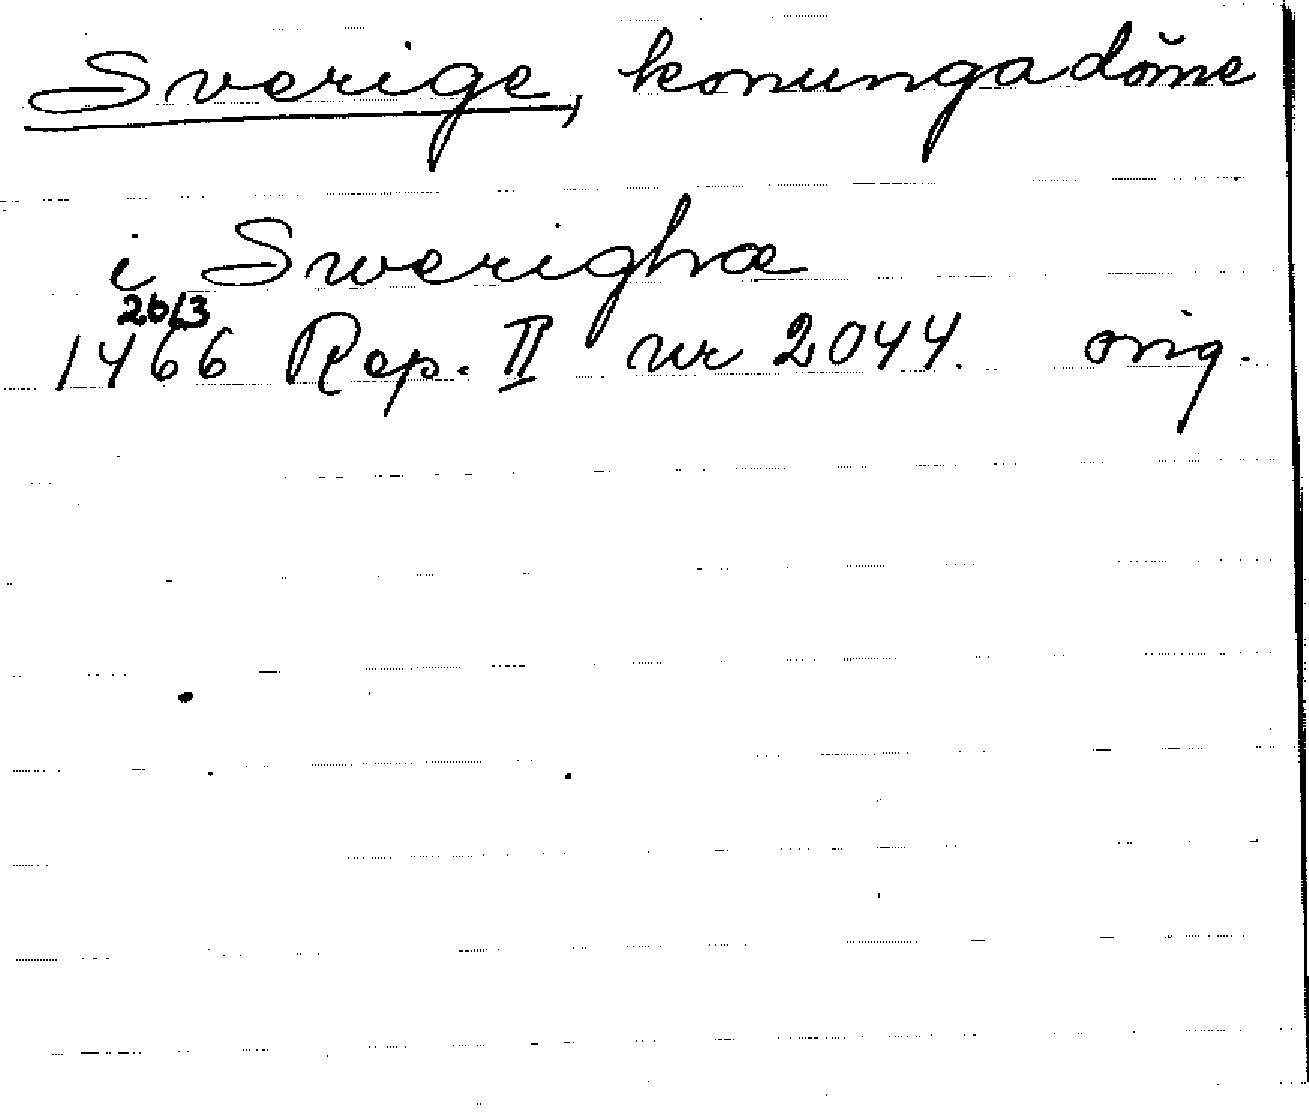 Sverige, konungadöme
i Swerighæ
26/3
1466 Rep. II nr 2044. orig.